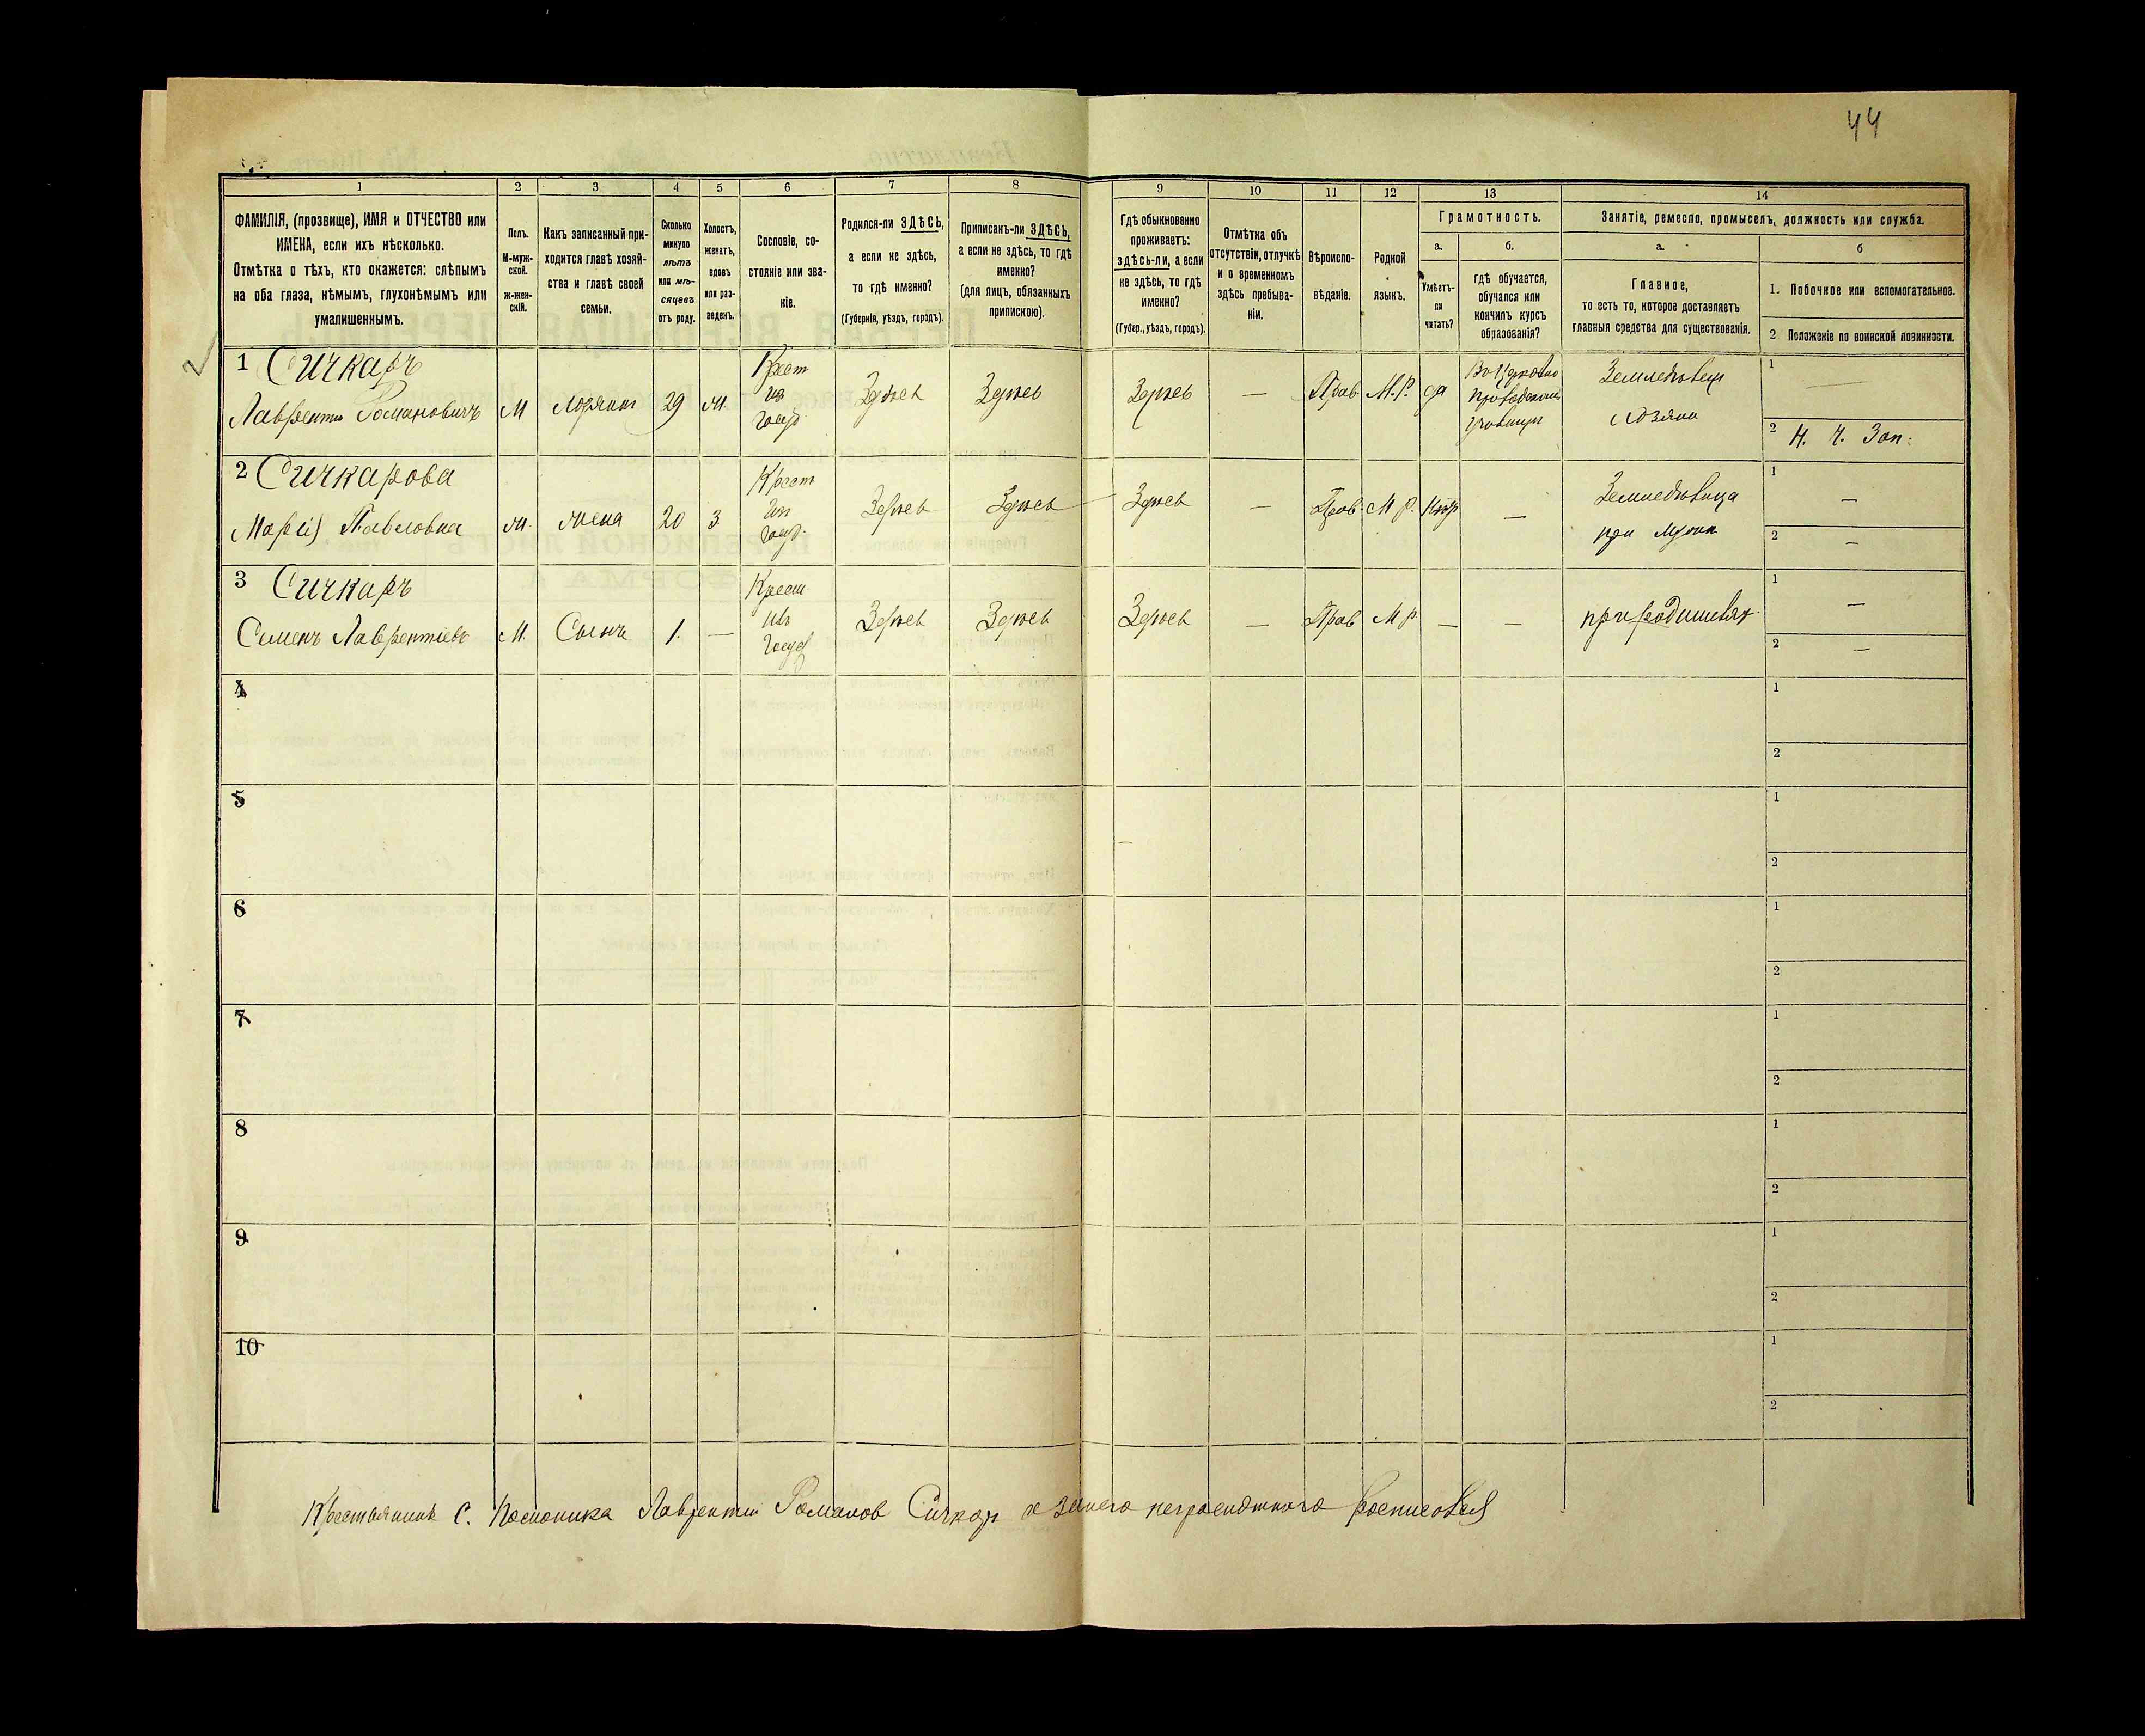 44
1
2
3
4
5
6
7
8
9
10
11
12
13
14
ФАМИЛІЯ, (прозвище), ИМЯ и ОТЧЕСТВО или
ИМЕНА, если ихъ нѣсколько.
Отмѣтка о тѣхъ, кто окажется: слѣпымъ
на оба глаза, нѣмымъ, глухонѣмымъ или
умалишеннымъ.
Полъ.
М-муж-
ской.
Ж-жен-
скій.
Какъ записанный при-
ходится главѣ хозяй-
ства и главѣ своей
семьи.
Сколько
минуло
лѣтъ
или мѣ-
сяцевъ
отъ роду.
Холостъ,
женатъ,
вдовъ
или раз-
веденъ.
Сословіе, со-
стояніе или зва-
ніе.
Родился-ли ЗДѢСЬ,
а если не здѣсь,
то гдѣ именно?
(Губернія, уѣздъ, городъ).
Приписанъ-ли ЗДѢСЬ,
а если не здѣсь, то гдѣ
именно?
(для лицъ, обязанныхъ
припискою).
Гдѣ обыкновенно
проживаетъ:
здѣсь-ли, а если
не здѣсь, то гдѣ
именно?
(Губер., уѣздъ, городъ).
Отмѣтка объ
отсутствіи, отлучкѣ
и о временномъ
здѣсь пребыва-
ніи.
Вѣроиспо-
вѣданіе.
Родной
языкъ.
Грамотность.
а.
Умѣетъ-
ли
читать?
б.
гдѣ обучается,
обучался или
кончилъ курсъ
образованія?
Занятіе, ремесло, промыселъ, должность или служба.
а.
Главное,
то есть то, которое доставляетъ
главныя средства для существованія.
б
1. Побочное или вспомогательное.
2. Положеніе по воинской повинности.
1 Сичкаръ
Лаврентій Романовичъ
М
29
Крест
из
госуд
Здѣсь
Здѣсь
Здѣсь
—
Прав
М.Р.
да
Землед
хозяин
1 —
2 Н. Ч. Зап:
2 Сичкарова
Марія Павловна
жена
20
З
Крест
из
госуд
Здѣсь
Здѣсь
Здѣсь
—
Прав
М р.
—
при мужи
1 —
2 —
3 Сичкаръ
Семенъ Лаврентіевъ
М.
Сынъ
1.
—
Крест
изъ
госуд
Здѣсь
Здѣсь
Здѣсь
—
Прав
М р
—
—
при родителях
1 —
2 —
4
1
2
5
1
2
6
1
2
7
1
2
8
1
2
9
1
2
10
1
2
Крестьянинъ С. Лаврентий Романов Сичкар